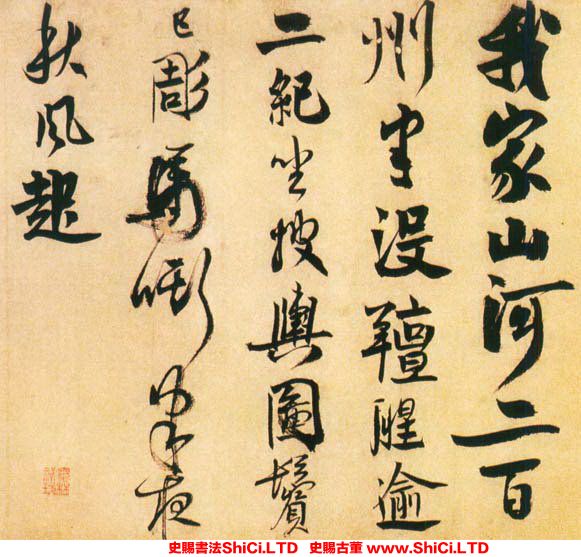 我家山河二百
州半没羶腥逾
二紀坐搜輿圖鬢
已彫馬嘶夜
秋風起
史賜書法ShiCi.LTD 史賜古董 www.ShiCi.LTD